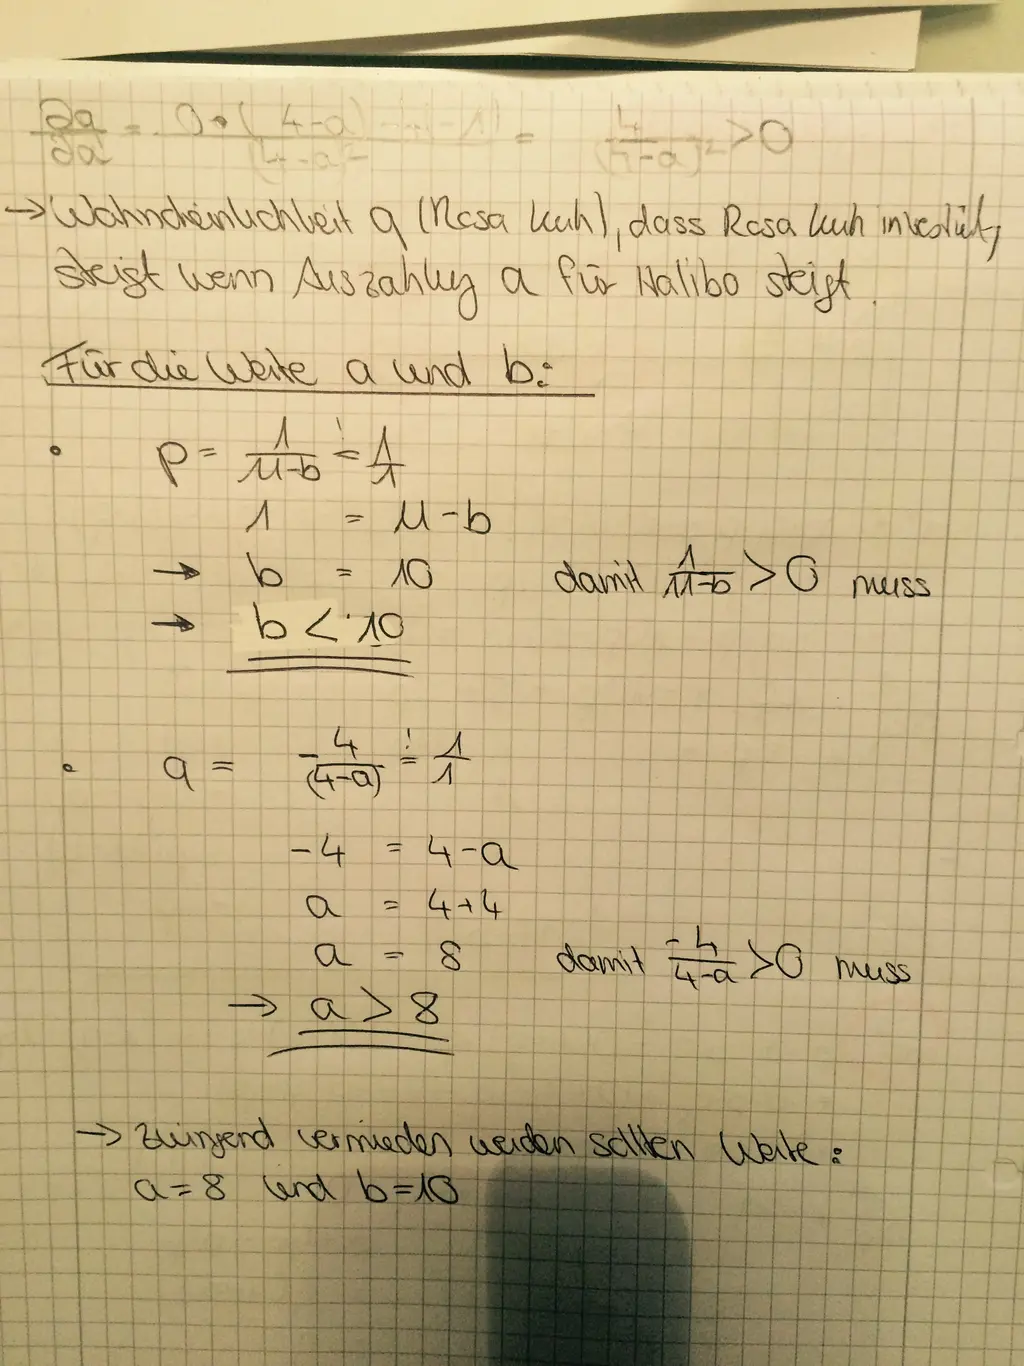 ∂q/∂a = 0·(4-a) -...-1)/(4-a)² = 4/(4-a)² > 0
→ Wahrscheinlichkeit q (Rosa Kuh), dass Rosa Kuh investiert,
steigt wenn Auszahlung a für Halibo steigt.
Für die Werte a und b:
• p = 1/(11-b) =! 1/1
1 = 11-b
→ b = 10 damit 1/(11-b) > 0 muss
→ b < 10
• q = -4/(4-a) =! 1/1
-4 = 4-a
a = 4+4
a = 8 damit -4/(4-a) > 0 muss
→ a > 8
→ zwingend vermieden werden sollten Werte:
a=8 und b=10